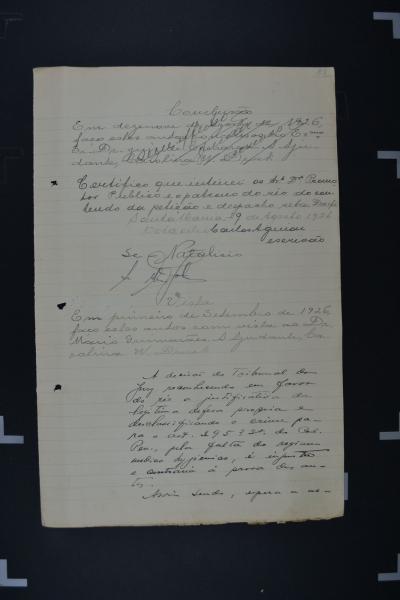 Conclusão
Em dezenove de Agosto de 1926,
faço estes autos conclusos ao Exmo
Sr. Dr. Juiz A Aju-
dante, Carolina W.
Certifico que intimei os Srs. Dr. Promo
tor Publico e o patrono do réo do con
teudo da petição e despacho retro. Dou fé.
Santa Maria, 19 de Agosto 1926
O escrivão Carlos
escrivão
Se Natalicio
Vista
Em primeiro de Setembro de 1926,
faço estes autos com vista ao Dr.
Mario Guimarães. A Ajudante, Ca-
rolina W.
A decisão do Tribunal do
Jury reconhecendo em favor
do réo a justificativa da
legitima defesa propria e
desclassificando o crime pa-
ra o art. 295 § 2º do Cod.
Pen., pela falta do regimen
medico hygienico, é injusta
e contraria á prova dos au-
tos.
Assim sendo, espera a